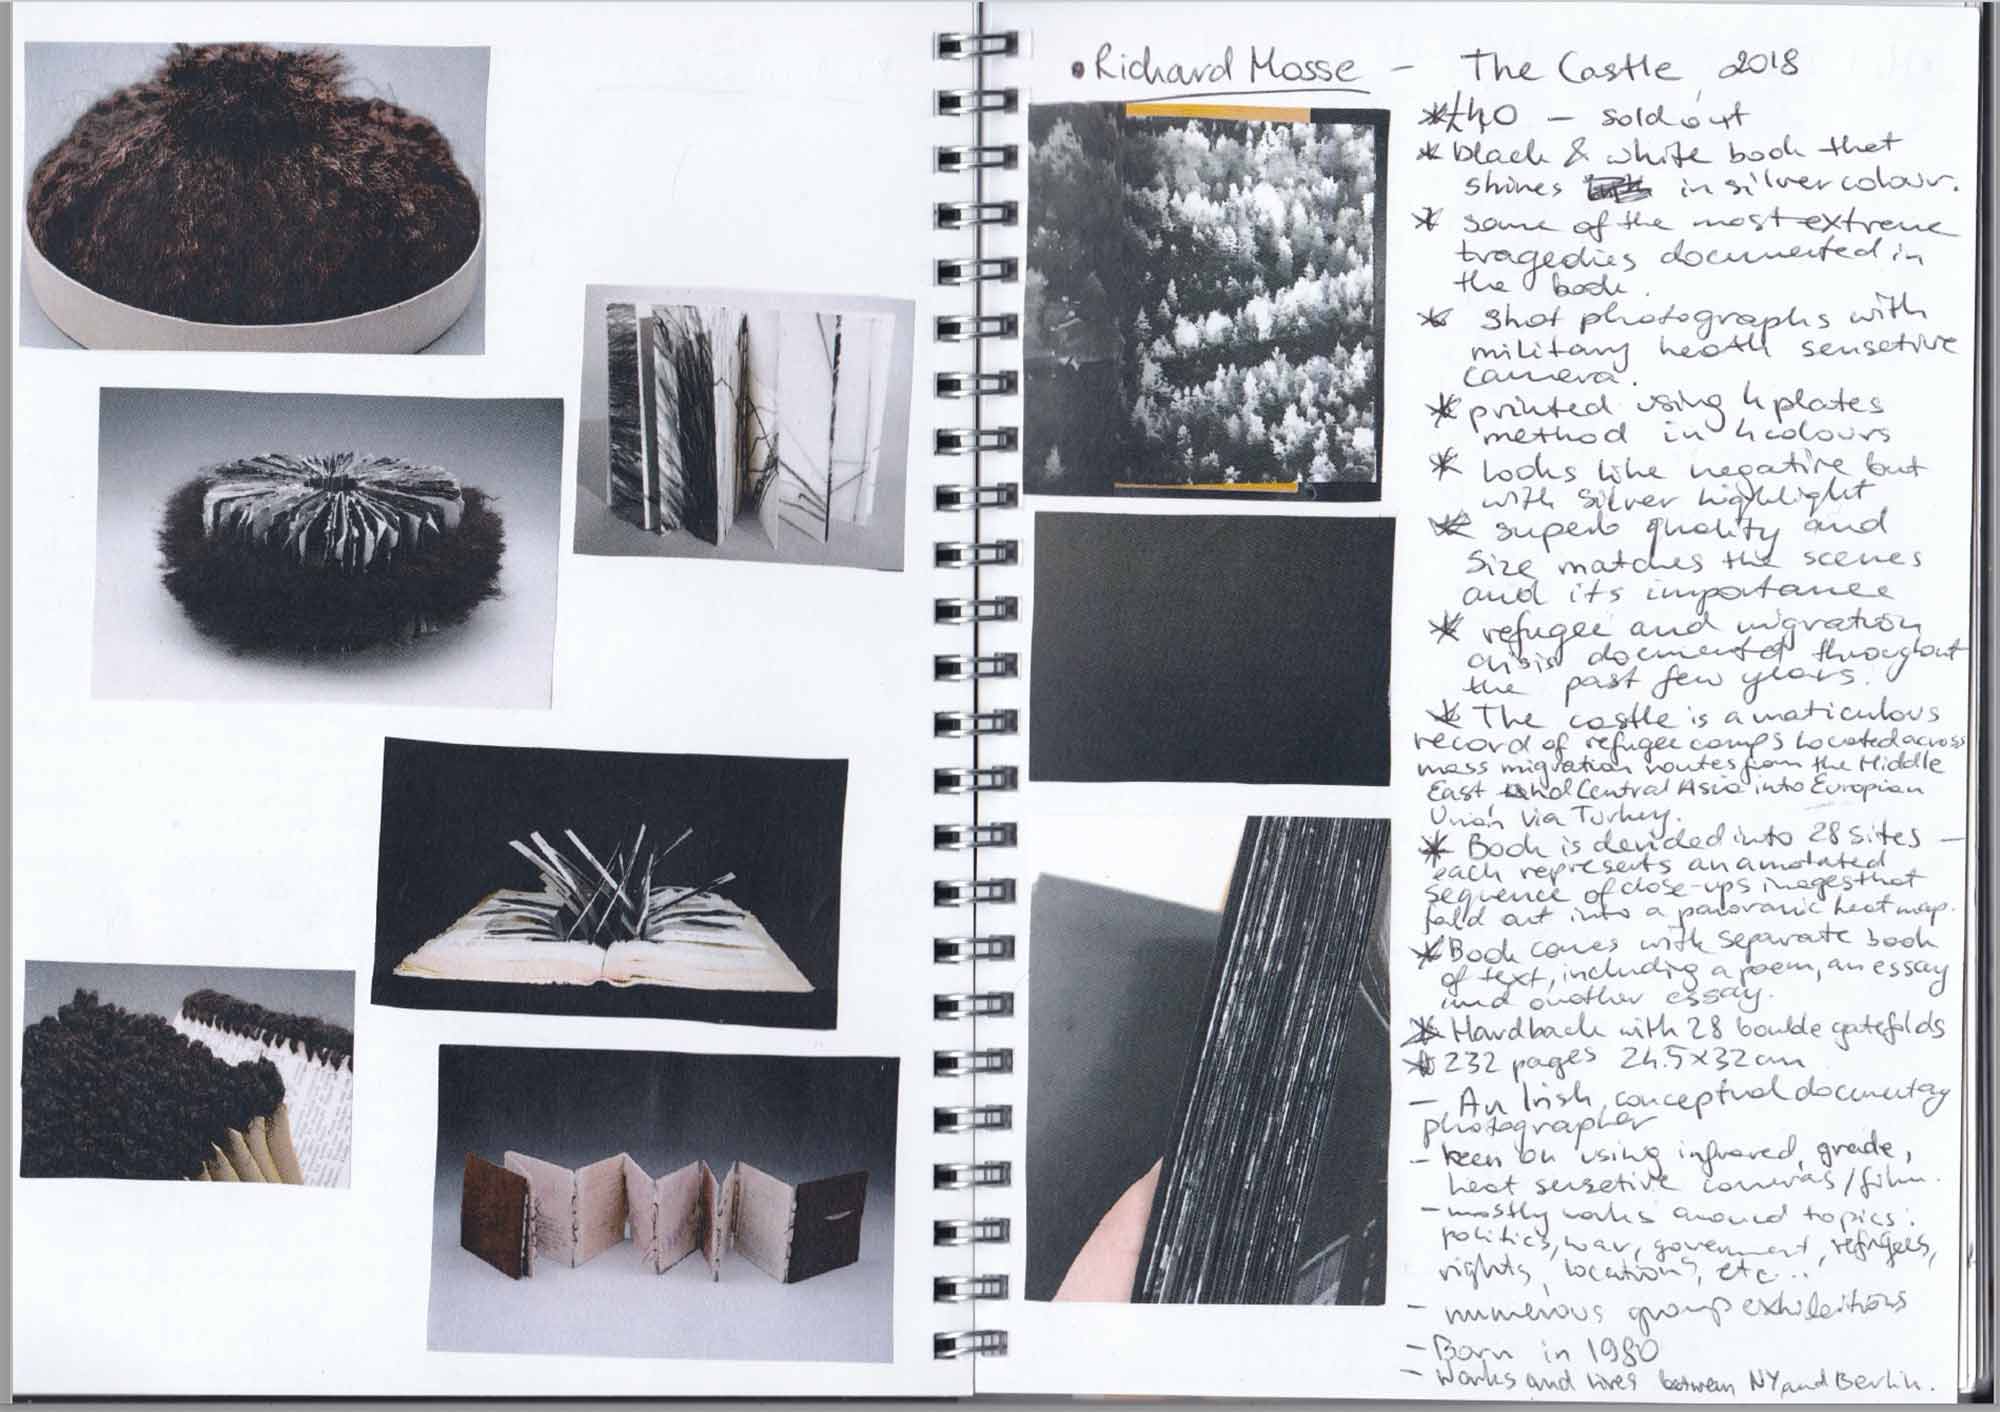 • Richard Mosse – The Castle, 2018
* £40 – sold out
* black & white book that
shines in silver colour.
* some of the most extreme
tragedies documented in
the book.
* shot photographs with
military heath sensetive
camera.
* printed using 4 plates
method in 4 colours
* looks like negative but
with silver highlight
* superb quality and
size matches the scenes
and its importance
* refugee and migration
crisis documented throughout
the past few years.
* The castle is a maticulous
record of refugee camps located across
mass migration routes from the Middle
East and Central Asia into Europian
Union via Turkey.
* Book is devided into 28 sites –
each represents an anotated
sequence of close-ups images that
fold out into a panoramic heat map.
* Book comes with separate book
of text, including a poem, an essay
and another essay.
* Hardback with 28 boulde gatefolds
* 232 pages 24.5x32cm
– An Irish conceptual documentay
photographer
– keen on using infrared, grade,
heat sensetive cameras/film.
– mostly works around topics:
politics, war, goverment, refugees,
rights, locations, etc...
– numerous group exhibitions
– Born in 1980
– Works and lives between NY and Berlin.